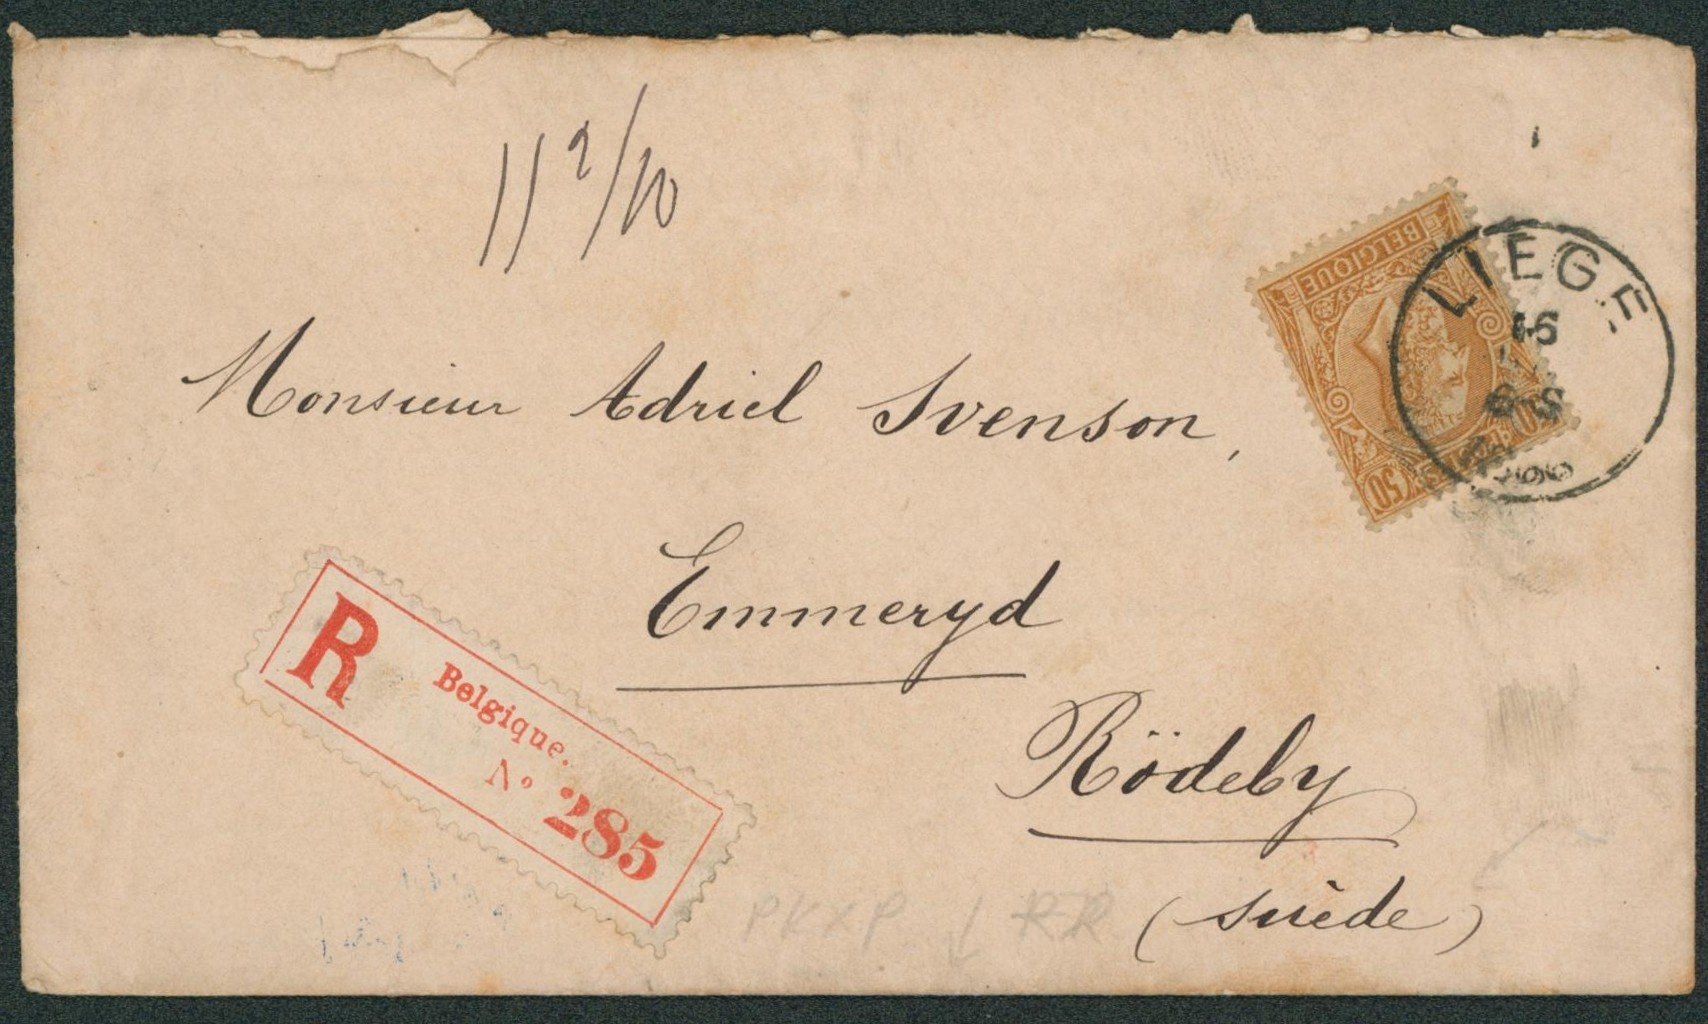 11 2/10
BELGIQUE
50
LIEGE
Monsieur Adriel Svenson,
Emmeryd
Rödeby
(suède)
R
Belgique.
No 285
PKXP ↓ RR